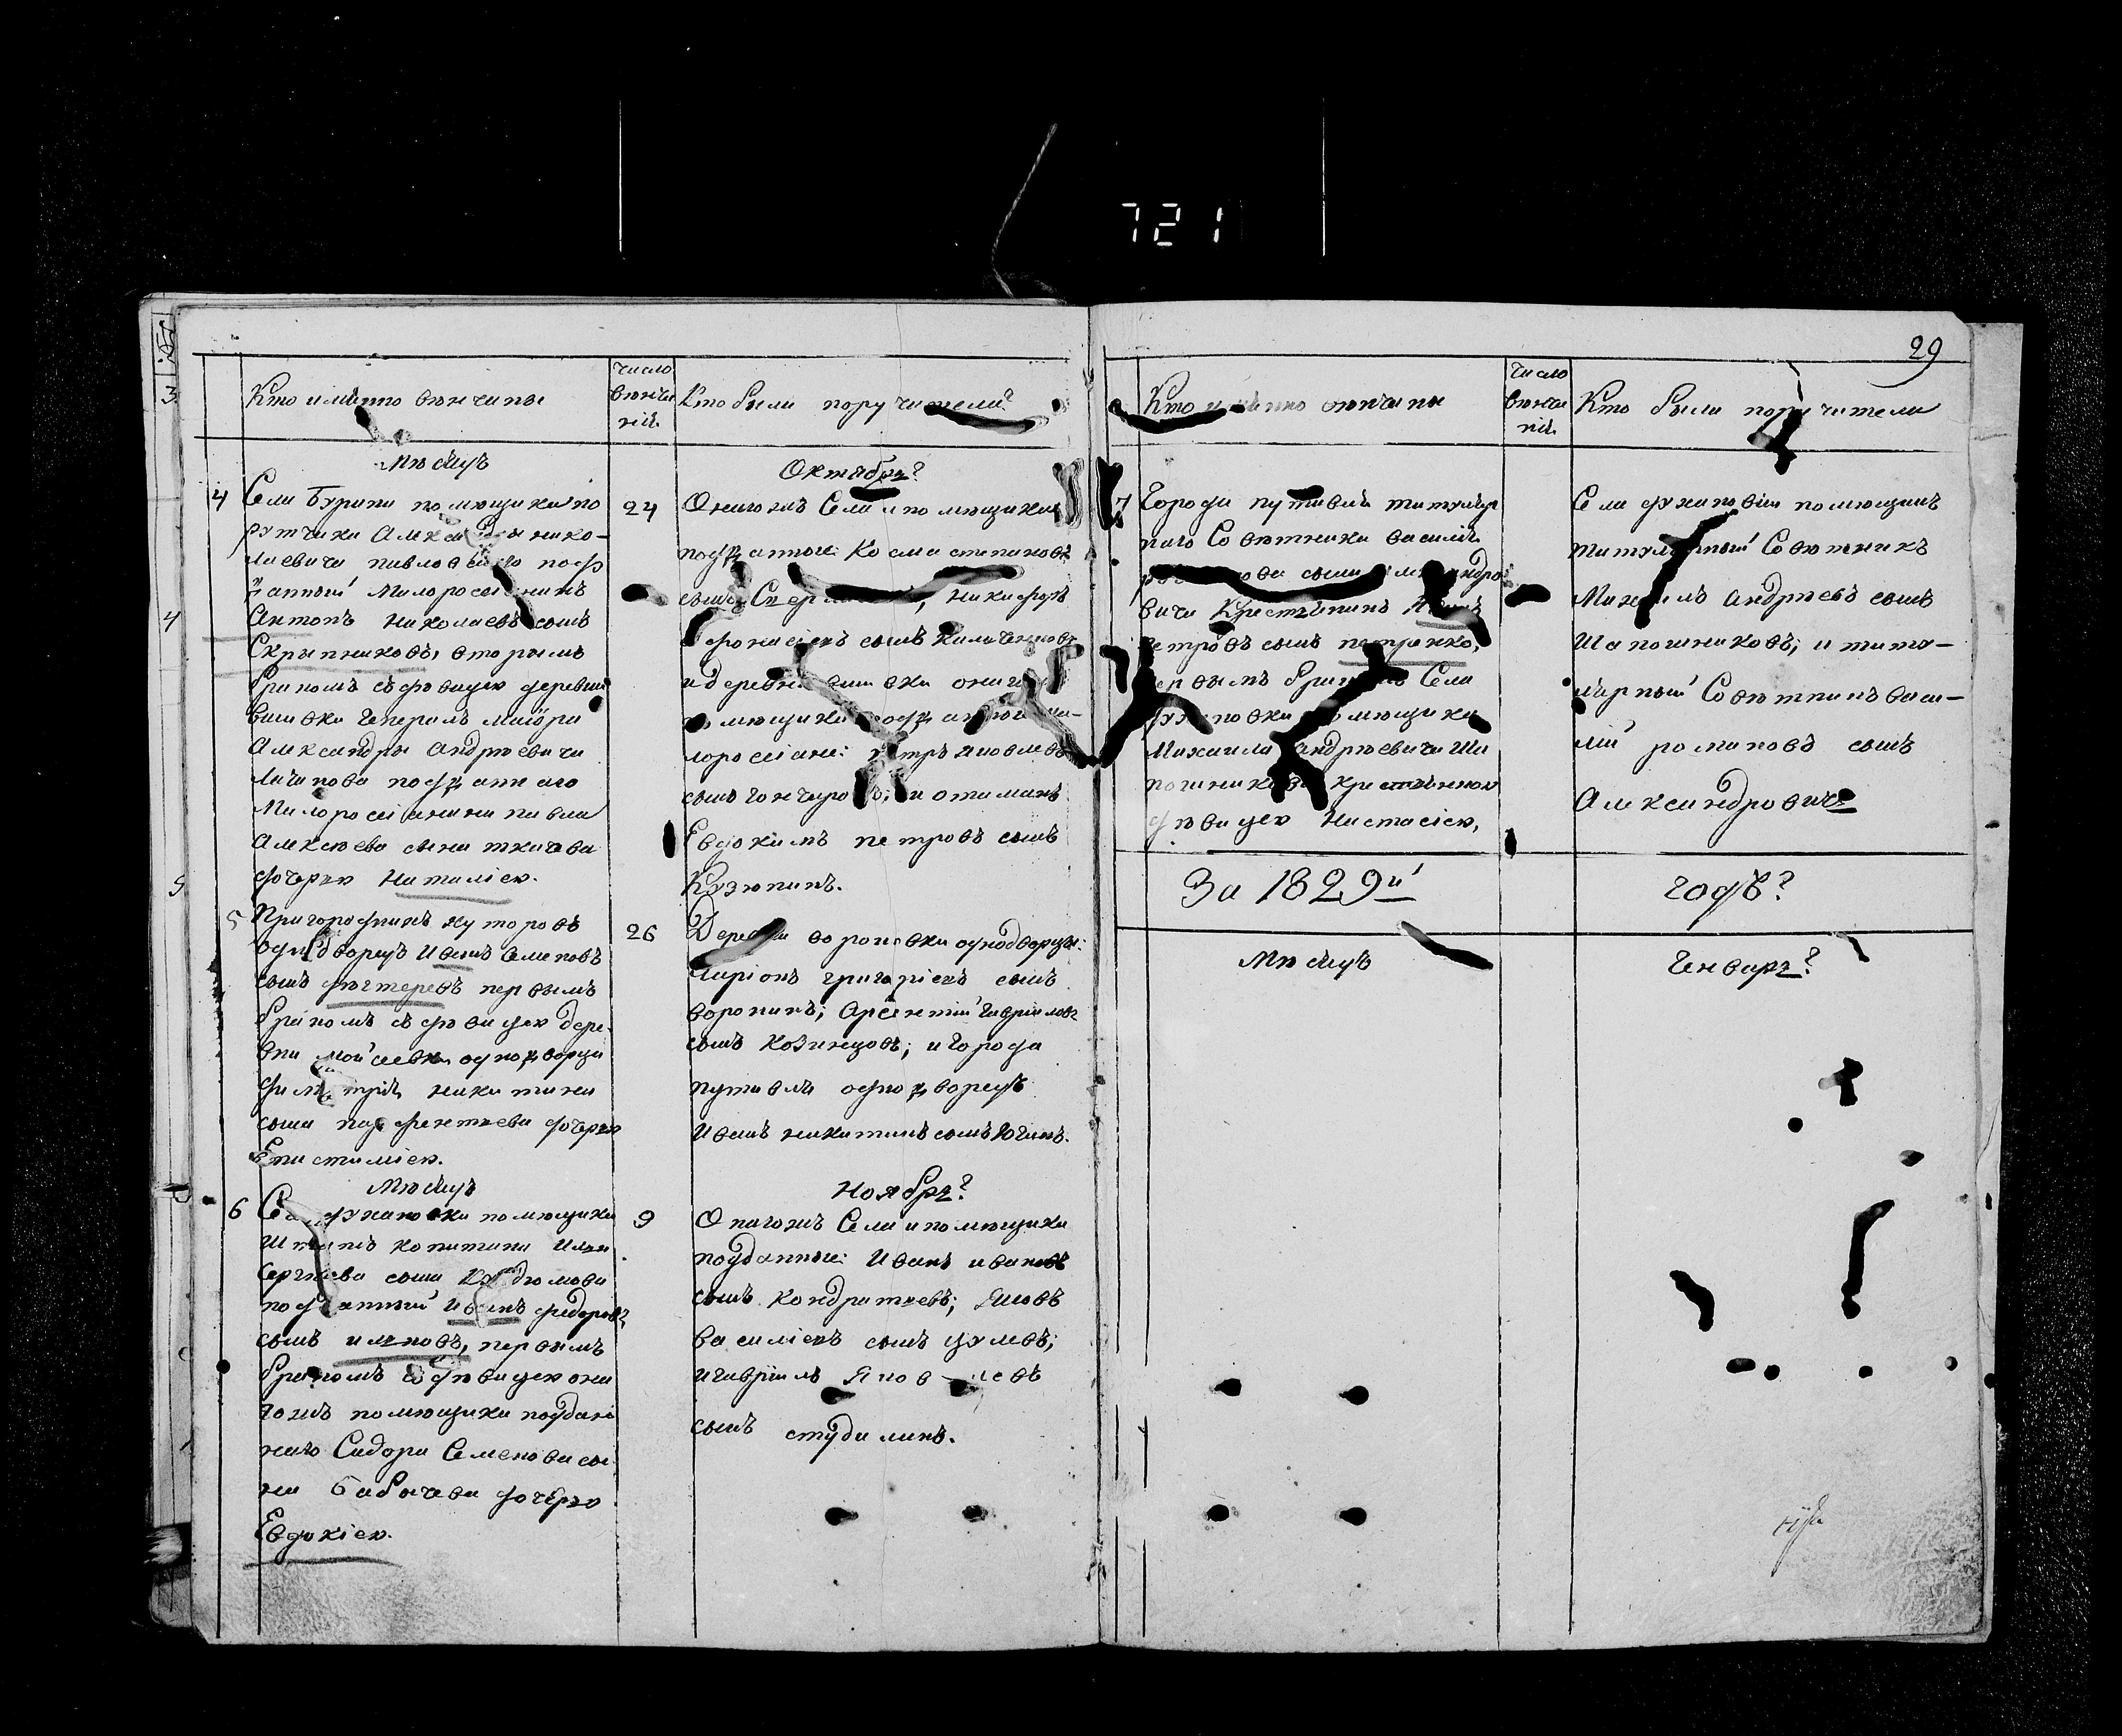 721
29
Кто имѣнно вѣнчаны
число вѣнчаній
Кто были поручители
Мѣсяцъ
Октябрь
4
Села Бурини помѣщика по
ручика Александра Нико-
лаевича Павлов под
данный Малоросіянинъ
Антонъ Николаевъ сынъ
Скрыпниковъ, вторымъ
бракомъ съ дѣвицею деревни
вишовки Генералъ маіора
Александры Андрѣевича
личинова подданнаго
Малоросіянина Павла
Алексѣева сына ткачева
дочерью Наталіею.
24
Онагожъ Села и помѣщика
подданные: Косма степановъ
сынъ никифоръ
Афонасіевъ сынъ
и деревни вишовки онаго
помѣщика подданные ма-
лоросіане: Петръ яковлевъ
сынъ Гончаровъ; и отаманъ
Евдокимъ петровъ сынъ
Кузюпинъ.
5
Пригороднихъ хуторовъ
однодворецъ Иванъ Семеновъ
сынъ дѣгтеревъ первымъ
бракомъ съ дѣвицею дере-
вни мойсевки однодворца
димитрія никитина
сына парфентьева дочерью
Епистиміею.
26
Деревни вороновки однодворцы:
иларіонъ григоріевъ сынъ
воронинъ; Арсентій Гавриловъ
сынъ Козинцовъ; и Города
путивля однодворецъ
Иванъ никитинъ сынъ Югинъ.
Мѣсяцъ
Ноябрь
6
Села духановки помѣщика
Штапсъ капитана Ильи
Сергѣева сына
подданный Иванъ федоровъ
сынъ иляновъ, первымъ
бракомъ съ дѣвицею она
гожъ помѣщика поддан
наго Сидора Семенова сы
на бабычева дочерью
Евдокіею.
9
Онагожъ Села и помѣщика
подданные: Иванъ ивановъ
сынъ Кондратьевъ; яковъ
василіевъ сынъ
и гавріилъ Яковлевъ
сынъ студилинъ.
Кто имѣнно вѣнчаны
число вѣнчаній
Кто были поручители
7
Города путивля титуляр
наго Совѣтника василія
романова сына Александро
вича Крестьянинъ
петровъ сынъ петренко,
первымъ бракомъ Села
духановки помѣщика
Михаила Андрѣевича Ша
пошникова крестьянкою
дѣвицею Настасіею,
Села духановки помѣщикъ
титулярный Совѣтникъ
Михаилъ андрѣевъ сынъ
Шапошниковъ; и титу-
лярный Совѣтникъ васи-
лій романовъ сынъ
Александровичь
За 1829й годъ
Мѣсяцъ
Генварь